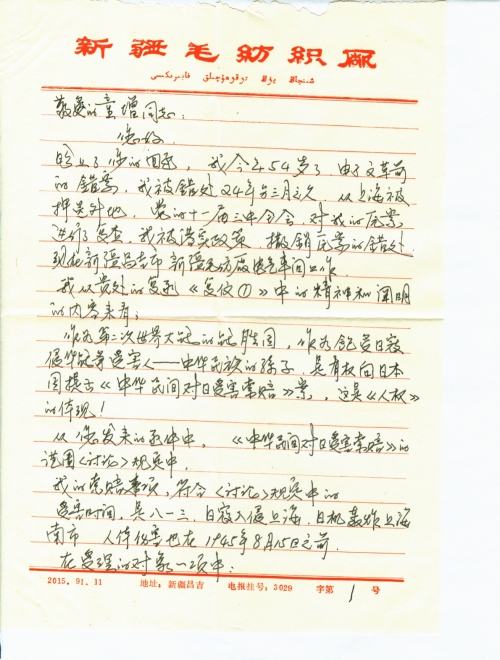 新疆毛纺织厂
شىنجاڭ يۇڭ توقۇمۇچىلىق فابىرىكىسى
敬爱的童增同志:
您好
我今年54岁了,由于文革前
的错案,我被错处24年另三月之久 从上海被
押送外地,党的十一届三中全会,对我的历案
进行了复查,我被落实政策,撤销历案的错处
现在新疆昌吉市新疆毛纺厂电气车间工作
我从贵处的复函《复件①》中的精神和阐明
的内容来看:
作为第二次世界大战的战胜国,作为饱受日寇
侵华战争受害人——中华民族的孙子,是有权向日本
国提出《中华民间对日受害索赔》案,这是《人权》
的体现!
从您发来的函件中,《中华民间对日受害索赔》的
范围<讨论>规定中,
我的索赔事项,符合<讨论>规定中的
受害时间,是八一三,日寇入侵上海,日机轰炸上海
南市 人体伤害也在1945年8月15日之前,
在受理的对象一项中:
2015.91.11 地址:新疆昌吉 电报挂号:3029 字第 1 号